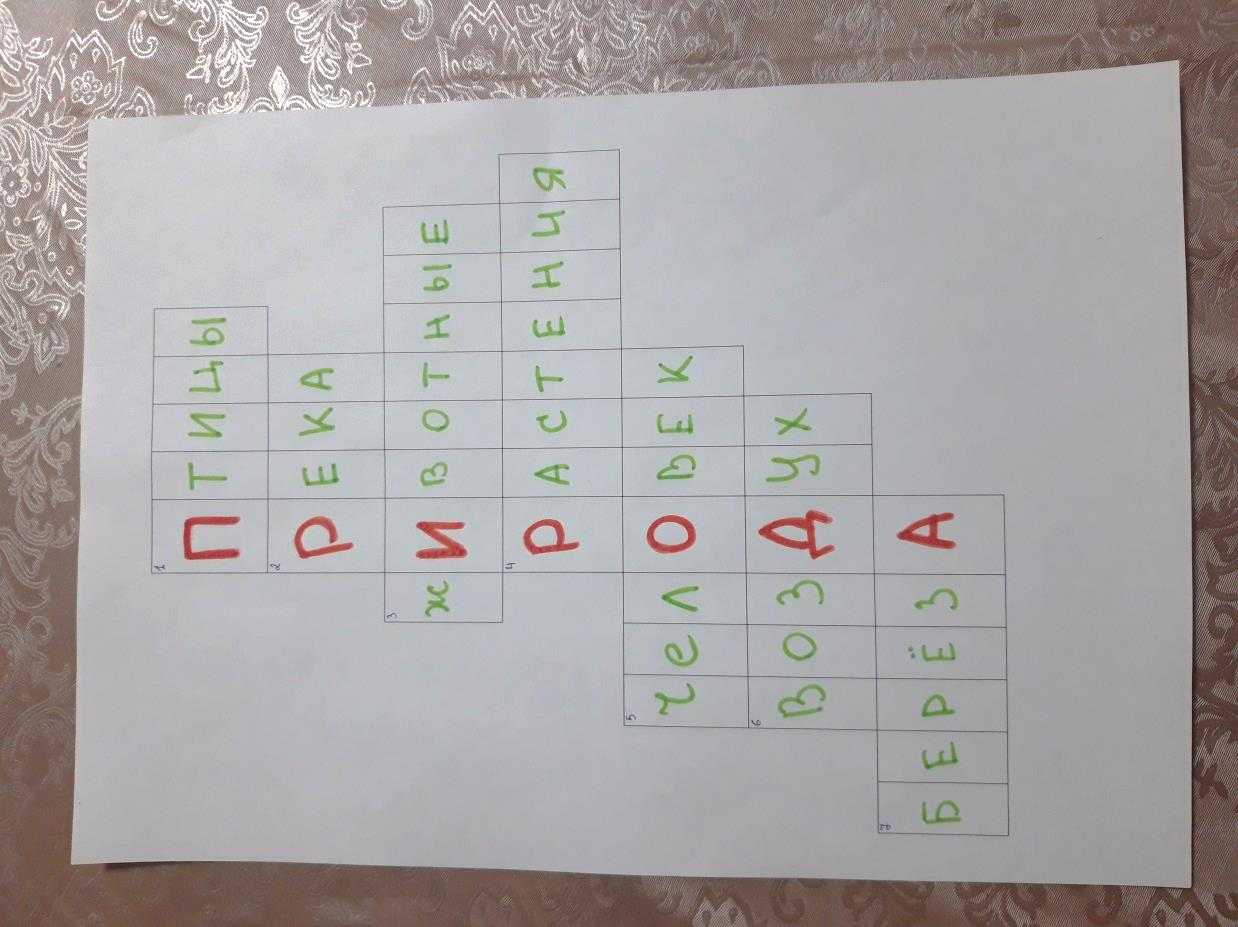 1 ПТИЦЫ
2 РЕКА
3 жИВОТНЫЕ
4 РАСТЕНИЯ
5 ЧеЛОВЕК
6 ВОЗДУХ
7 БЕРЁЗА